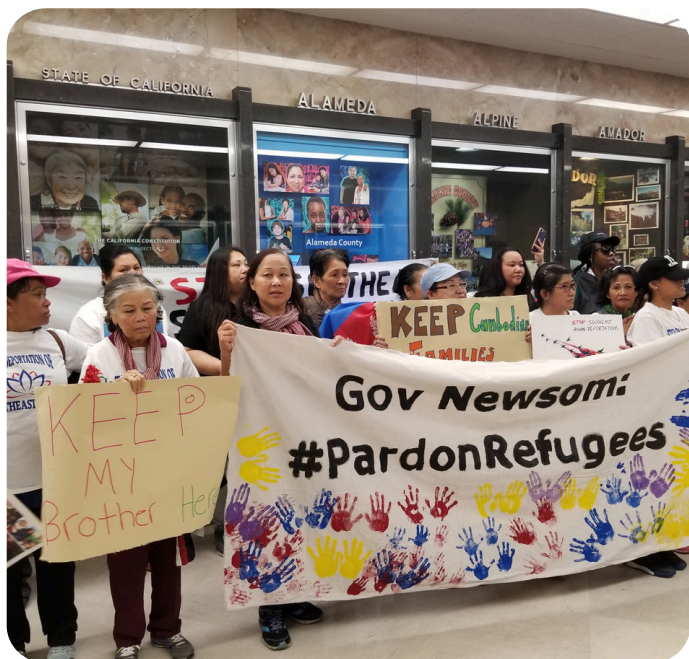 STATE OF CALIFORNIA
ALAMEDA
ALPINE
AMADOR
THE CALIFORNIA CONSTITUTION
Alameda County
THE
KEEP Cambodian
FAMILIES
STOP SOUTHEAST
ASIAN DEPORTATIONS
DEPORTATION OF
Gov Newsom:
#PardonRefugees
KEEP
MY
Brother Here